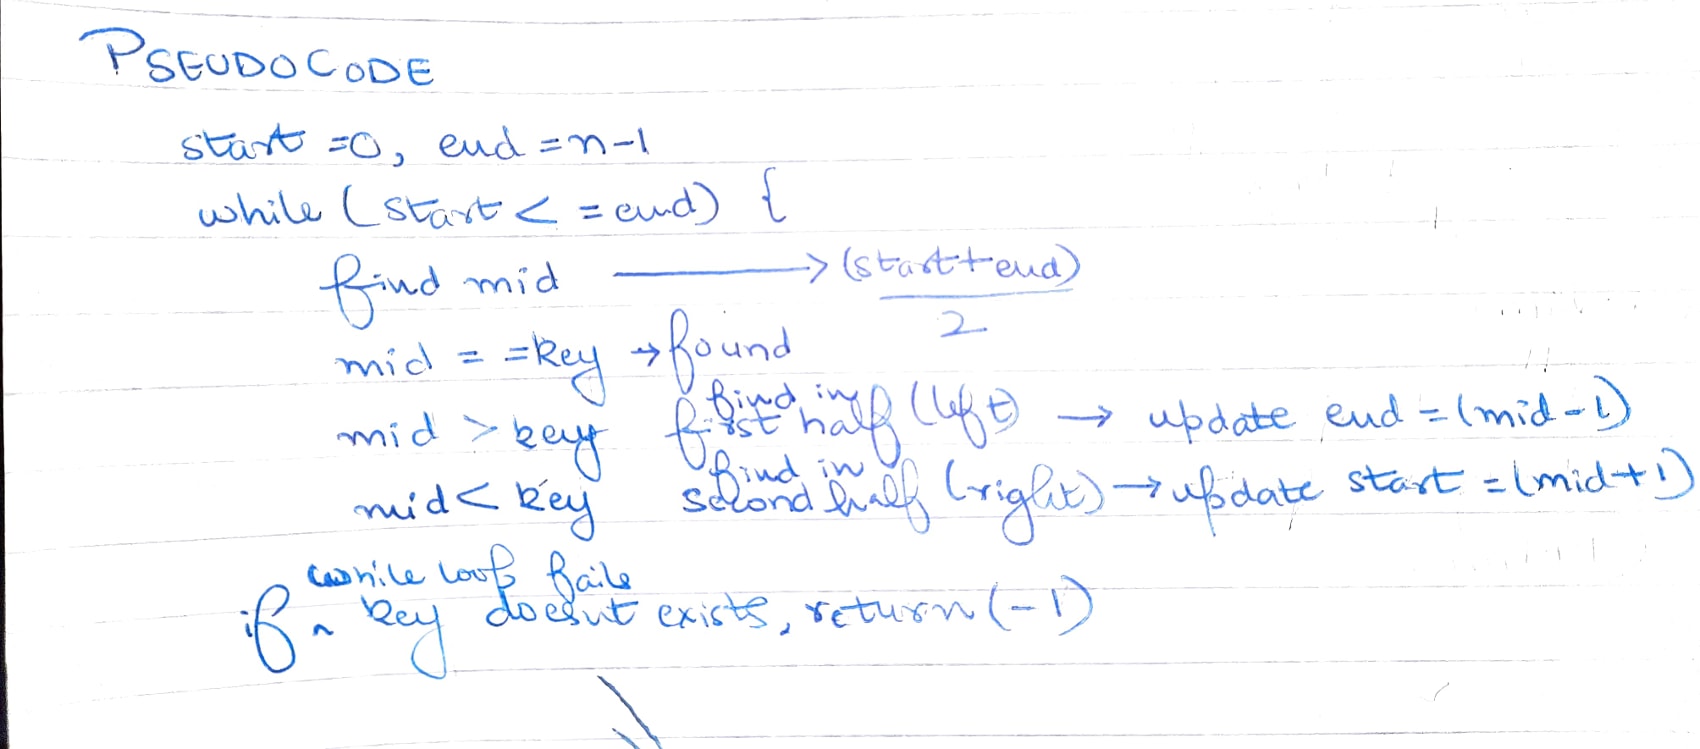 PSEUDOCODE
start =0, end =n-1
while (start < =end) {
find mid ⟶ (start+end)
2
mid = =key → found
find in
mid > key first half (left) → update end = (mid-1)
find in
mid < key second half (right) → update start = (mid+1)
while loop fails
if ^ key doesnt exists, return (-1)